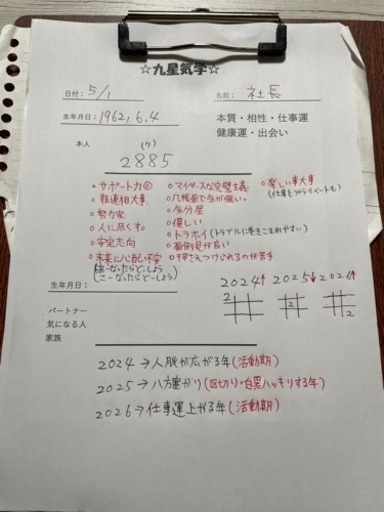 ☆九星気学☆
日付: 5/1
名前: 社長
生年月日: 1962.6.4
本質・相性・仕事運
健康運・出会い
本人
(7)
2885
・サポート力◎
・報連相大事
・努力家
・人に尽くす。
・安定志向
・未来に心配・不安
(あーなったらどーしよう
こーなったらどーしよう)
・マイナスな完璧主義
・几帳面で気が強い。
・気分屋
・優しい
・トラホイ(トラブルに巻きこまれやすい)
・面倒見が良い
・押さえつけられるのが苦手
・楽しい事大事
(仕事もプライベートも)
生年月日:
2024↑ 2025↓ 2026↑
2
2
2
パートナー
気になる人
家族
2024→人脈が広がる年(活動期)
2025→八方塞がり(区切り・白黒ハッキリする年)
2026→仕事運上がる年(活動期)